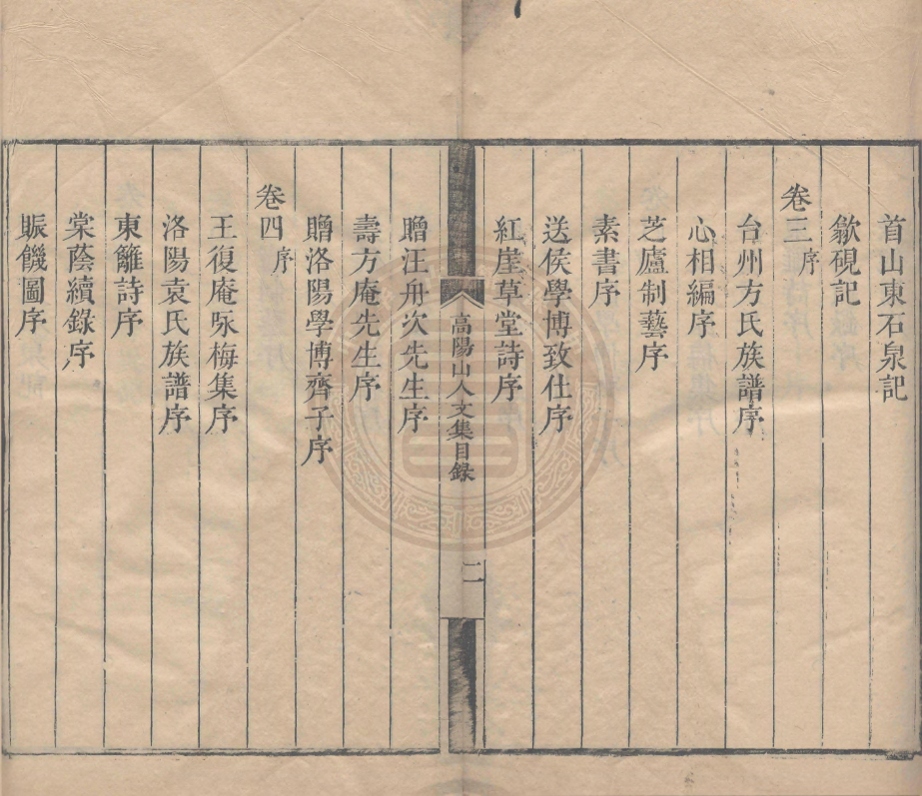 首山東石泉記
歙硯記
卷三 序
台州方氏族譜序
心相編序
芝廬制藝序
素書序
送侯學博致仕序
紅崖草堂詩序
高陽山人文集目錄 二
贈汪舟次先生序
壽方庵先生序
贈洛陽學博齊子序
卷四 序
王復庵咏梅集序
洛陽袁氏族譜序
東籬詩序
棠蔭續錄序
賑饑圖序